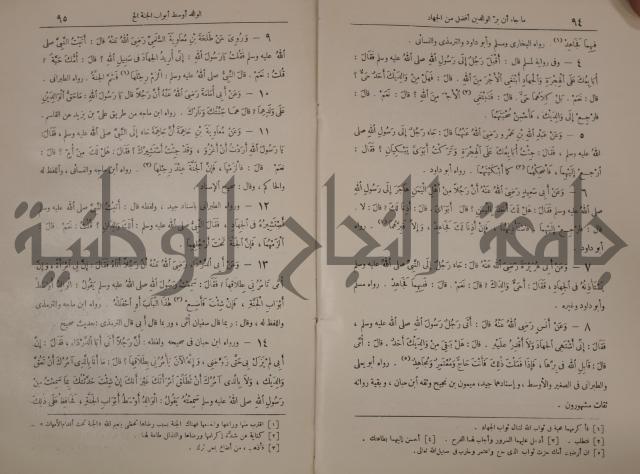 ٩٤ ما جاء أن برّ الوالدين أفضل من الجهاد
فَفِيهِمَا فَجَاهِدْ (١) . رواه البخارى ومسلم وأبو داود والترمذى والنسائى .
٤ — وفى رواية لمسلم قال : أَقْبَلَ رَجُلٌ إِلَى رَسُولِ اللهِ صلى الله عليه وسلم فَقَالَ :
أُبَايِعُكَ عَلَى الْهِجْرَةِ وَالْجِهَادِ أَبْتَغِى الْأَجْرَ مِنَ اللهِ . قال : فَهَلْ مِنْ وَالِدَيْكَ أَحَدٌ حَىٌّ ؟
قال : نَعَمْ . بَلْ كِلَاهُمَا حَىٌّ . قال : فَتَبْتَغِى (٢) الْأَجْرَ مِنَ اللهِ ؟ قال : نَعَمْ . قال :
فَارْجِعْ إِلَى وَالِدَيْكَ ، فَأَحْسِنْ صُحْبَتَهُمَا .
٥ — وَعَنْ عَبْدِ اللهِ بْنِ عَمْرٍو رَضِىَ اللهُ عَنْهُمَا قالَ : جَاءَ رَجُلٌ إِلَى رَسُولِ اللهِ صلى
الله عليه وسلم ، فَقَالَ : جِئْتُ أُبَايِعُكَ عَلَى الْهِجْرَةِ وَتَرَكْتُ أَبَوَىَّ يَبْكِيَانِ ؟ فَقَالَ :
ارْجِعْ إِلَيْهِمَا ، فَأَضْحِكْهُمَا (٣) كَمَا أَبْكَيْتَهُمَا . رواه أبو داود .
٦ — وَعَنْ أَبِى سَعِيدٍ رَضِىَ اللهُ عَنْهُ أَنَّ رَجُلًا مِنْ أَهْلِ الْيَمَنِ هَاجَرَ إِلَى رَسُولِ اللهِ
صلى الله عليه وسلم فَقَالَ : هَلْ لَكَ أَحَدٌ بِالْيَمَنِ ؟ قالَ : أَبَوَاىَ . قالَ : أَذِنَا لَكَ ؟ قالَ : لَا .
أبو داود .
٧ — وَعَنْ أَبِى هُرَيْرَةَ رَضِىَ اللهُ عَنْهُ قالَ : جَاءَ رَجُلٌ إِلَى رَسُولِ اللهِ صلى الله عليه وسلم
يَسْتَأْذِنُهُ فِى الْجِهَادِ ، فَقَالَ : أَحَىٌّ وَالِدَاكَ ؟ قالَ : نَعَمْ . قالَ : فَفِيهِمَا فَجَاهِدْ . رواه مسلم
وأبو داود وغيره .
٨ — وَعَنْ أَنَسٍ رَضِىَ اللهُ عَنْهُ قالَ : أَتَى رَجُلٌ رَسُولَ اللهِ صلى الله عليه وسلم ،
فَقَالَ : إِنِّى أَشْتَهِى الْجِهَادَ وَلَا أَقْدِرُ عَلَيْهِ . قالَ : هَلْ بَقِىَ مِنْ وَالِدَيْكَ أَحَدٌ . قالَ : أُمِّى
قالَ : قَابِلِ اللهَ فِى بِرِّهَا ، فَإِذَا فَعَلْتَ ذٰلِكَ فَأَنْتَ حَاجٌّ وَمُعْتَمِرٌ وَمُجَاهِدٌ (٥) . رواه أبو يعلى
والطبرانى فى الصغير والأوسط ، وإسنادهما جيد ، ميمون بن نجيح وثقه ابن حبان ، وبقية رواته
ثقات مشهورون .
الوالد أوسط أبواب الجنة الخ ٩٥
٩ — وَرُوِىَ عَنْ طَلْحَةَ بْنِ مُعَاوِيَةَ السُّلَمِىِّ رَضِىَ اللهُ عَنْهُ قالَ : أَتَيْتُ النَّبِىَّ صلى
اللهُ عليه وسلم فَقُلْتُ يَارَسُولَ اللهِ : إِنِّى أُرِيدُ الْجِهَادَ فى سَبِيلِ اللهِ ؟ قالَ : أُمُّكَ حَيَّةٌ ؟
قُلْتُ : نَعَمْ . قالَ النَّبِىُّ صلى الله عليه وسلم : الْزَمْ رِجْلَهَا (١) فَثَمَّ الْجَنَّةُ . رواه الطبرانى .
١٠ — وَعَنْ أَبِى أُمَامَةَ رَضِىَ اللهُ عَنْهُ أَنَّ رَجُلًا قالَ يَا رَسُولَ اللهِ : مَاحَقُّ الْوَالِدَيْنِ
عَلَى وَلَدِهِمَا ؟ قالَ هُمَا جَنَّتُكَ وَنَارُكَ . رواه ابن ماجه من طريق على بن يزيد عن القاسم .
١١ — وَعَنْ مُعَاوِيَةَ بْنِ جَاهِمَةَ أَنَّ جَاهِمَةَ جَاءَ إِلَى النَّبِىِّ صلى الله عليه وسلم ، فَقَالَ :
يَا رَسُولَ اللهِ أَرَدْتُ أَنْ أَغْزُوَ ، وَقَدْ جِئْتُ أَسْتَشِيرُكَ ؟ فَقَالَ : هَلْ لَكَ مِنْ أُمٍّ ؟ قالَ :
نَعَمْ قالَ : فَالْزَمْهَا ، فَإِنَّ الْجَنَّةَ عِنْدَ رِجْلِهَا (٢) . رواه ابن ماجه والنسائى ، واللفظ له
والحاكم ، وقال : صحيح الإسناد .
١٢ — ورواه الطبرانى بإسناد جيد ، ولفظه قال : أَتَيْتُ النَّبِىَّ صلى الله عليه وسلم
أَسْتَشِيرُهُ فى الْجِهَادِ ، فَقَالَ النَّبِىُّ صلى الله عليه وسلم : أَلَكَ وَالِدَانِ ؟ قُلْتُ : نَعَمْ . قالَ
الْزَمْهُمَا ، فَإِنَّ الْجَنَّةَ تَحْتَ أَرْجُلِهِمَا
١٣ — وَعَنْ أَبِى الدَّرْدَاءِ رَضِىَ اللهُ عَنْهُ أَنَّ رَجُلًا أَتَاهُ فَقَالَ : إِنَّ لِى امْرَأَةً ، وَإِنَّ
أُمِّى تَأْمُرُنِى بِطَلَاقِهَا
أَبْوَابِ الْجَنَّةِ ، فَإِنْ شِئْتَ فَأَضِعْ (٣) هٰذَا الْبَابَ أَوِ احْفَظْهُ . رواه ابن ماجه والترمذى
واللفظ له ، وقال : ربما قال سفيان أمى ، وربما قال أبى قال الترمذى : حديث صحيح
١٤ — ورواه ابن حبان فى صحيحه ولفظه : أَنَّ رَجُلًا أَتَى أَبَا الدَّرْدَاءِ ، فَقَالَ : إِنَّ
أَبِى لَمْ يَزَلْ بِى حَتَّى زَوَّجَنِى ، وَإِنَّهُ الْآنَ يَأْمُرُنِى بِطَلَاقِهَا ؟ قالَ : مَا أَنَا بِالَّذِى آمُرُكَ أَنْ تَعُقَّ
وَالِدَيْكَ ، وَلَا بِالَّذِى آمُرُكَ أَنْ تُطَلِّقَ امْرَأَتَكَ غَيْرَ أَنَّكَ إِنْ شِئْتَ حَدَّثْتُكَ بِمَا سَمِعْتُ مِنْ
رَسُولِ اللهِ صلى الله عليه وسلم سَمِعْتُهُ يَقُولُ : الْوَالِدُ أَوْسَطُ أَبْوَابِ الْجَنَّةِ ، فَحَافِظْ عَلَى ذٰلِكَ
جامعة النجاح الوطنية